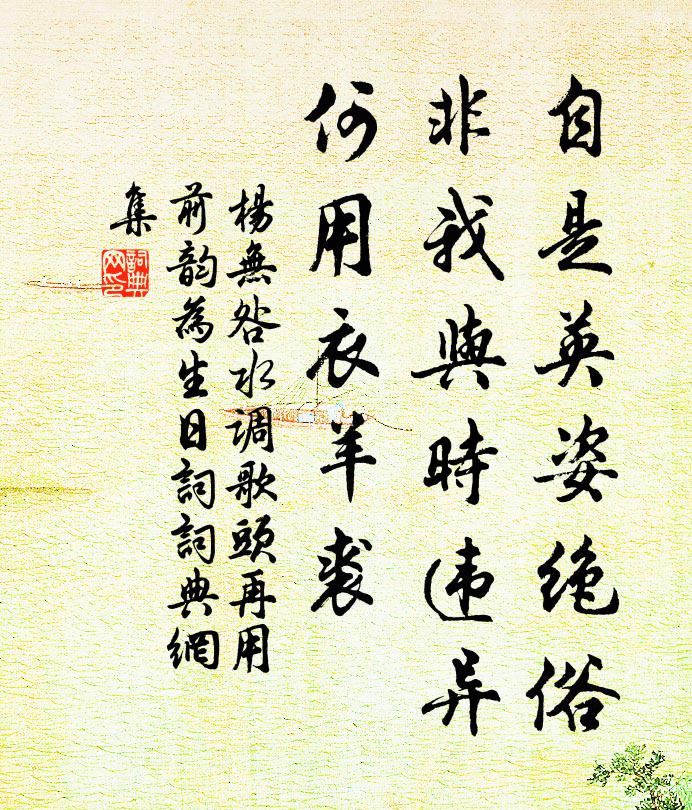 自是英姿绝俗
非我與時违异
何用衣羊裘
楊無咎水调歌頭再用
前韵為生日詞詞典網
集
詞典
网印